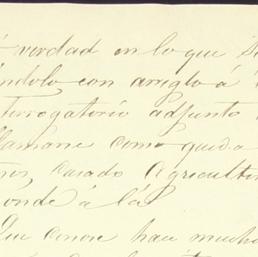 verdad en lo que se
ándolo con arreglo á
terrogatorio adjunto
llamarse como queda
casado Agricultor
onde á la
Que conoce hace mucho